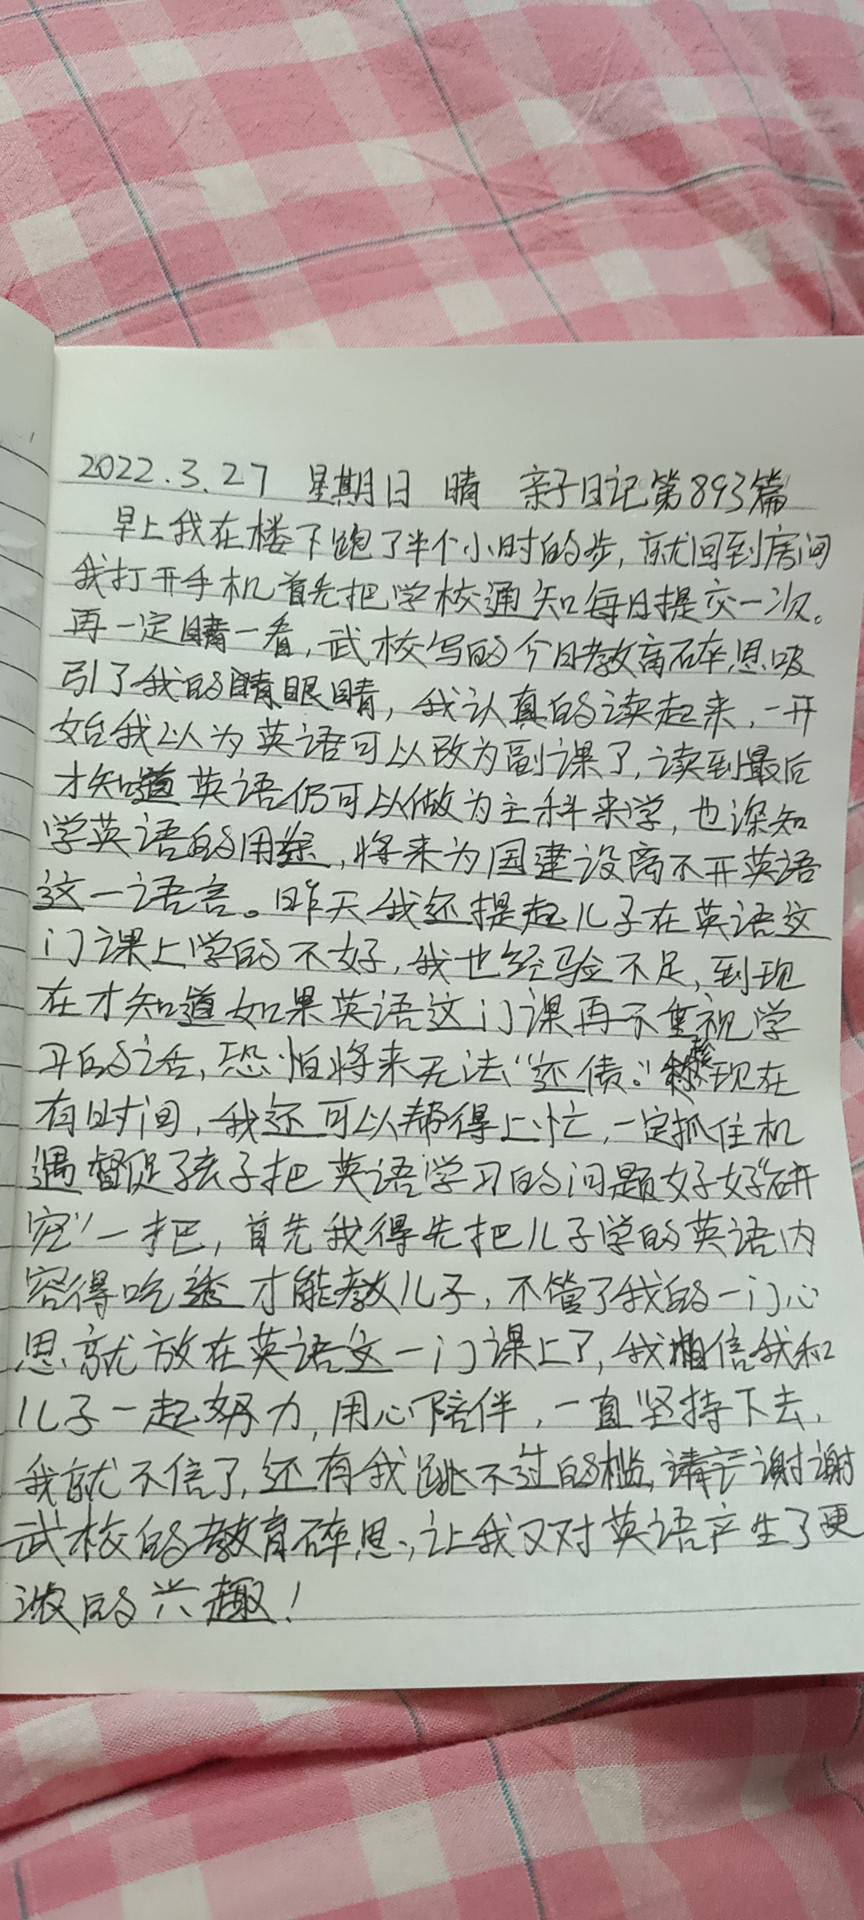 2022.3.27 星期日 晴 亲子日记第893篇
早上我在楼下跑了半个小时的步,就回到房间
我打开手机首先把学校通知每日提交一次。
再一定睛一看,武校写的今日教育碎思吸
引了我的眼睛,我认真的读起来,一开
始我以为英语可以改为副课了,读到最后
才知道英语仍可以做为主科来学,也深知
学英语的用途,将来为国建设离不开英语
这一语言。昨天我还提起儿子在英语这
门课上学的不好,我也经验不足,到现
在才知道如果英语这门课再不重视学
习的话,恐怕将来无法“还债。”趁现在
有时间,我还可以帮得上忙,一定抓住机
遇督促孩子把英语学习的问题好好“研
究”一把,首先我得先把儿子学的英语内
容得吃透才能教儿子,不管了我的一门心
思就放在英语这一门课上了,我相信我和
儿子一起努力,用心陪伴,一直坚持下去,
我就不信了,还有我跳不过的槛,谢谢
武校的教育碎思,让我又对英语产生了更
浓的兴趣!